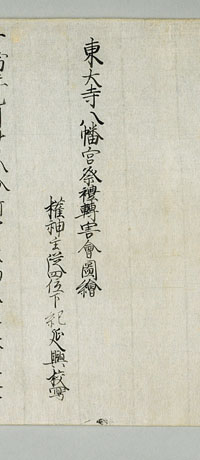 東大寺八幡宮祭禮轉害會圖繪
權神主從四位下紀延興校寫